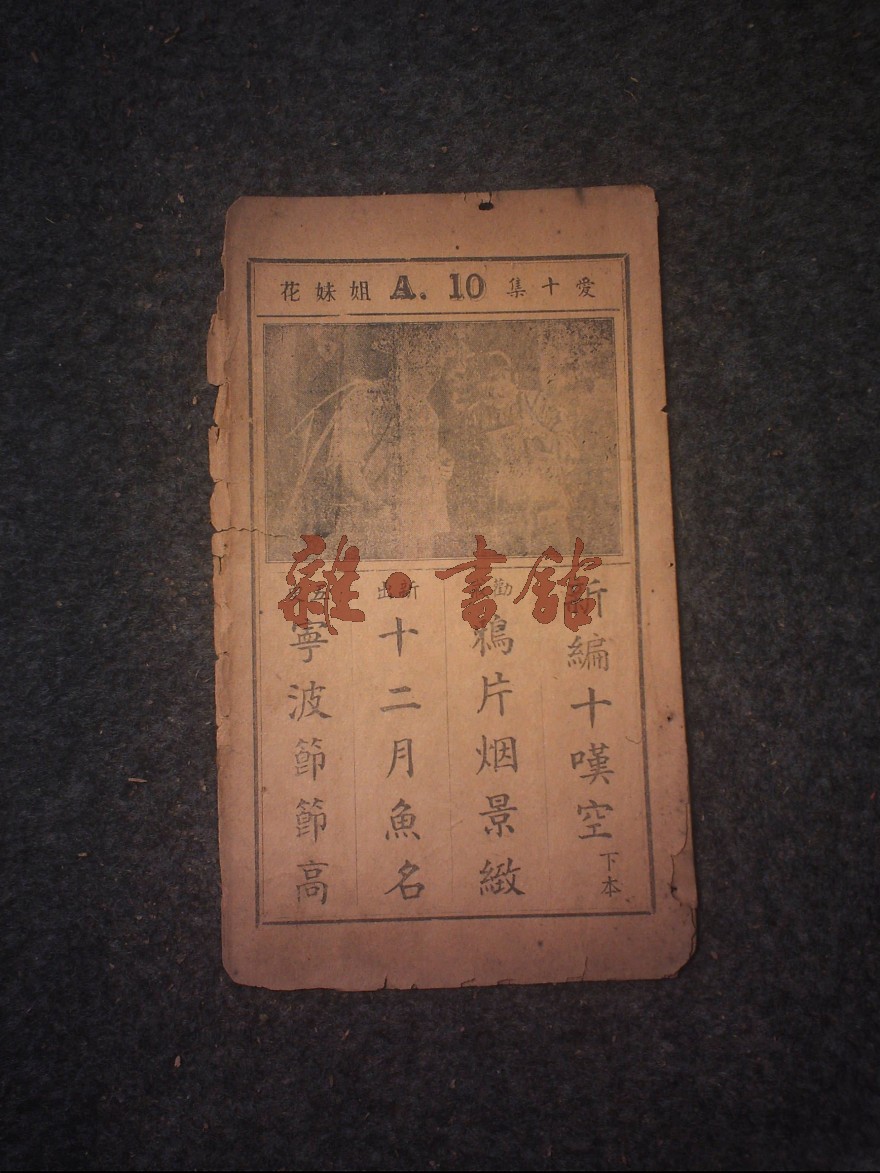 愛十集 A. 10 姐妹花
雜·書館
新編十嘆空 下本
勸
鴉片烟景緻
新出
十二月魚名
寧波節節高